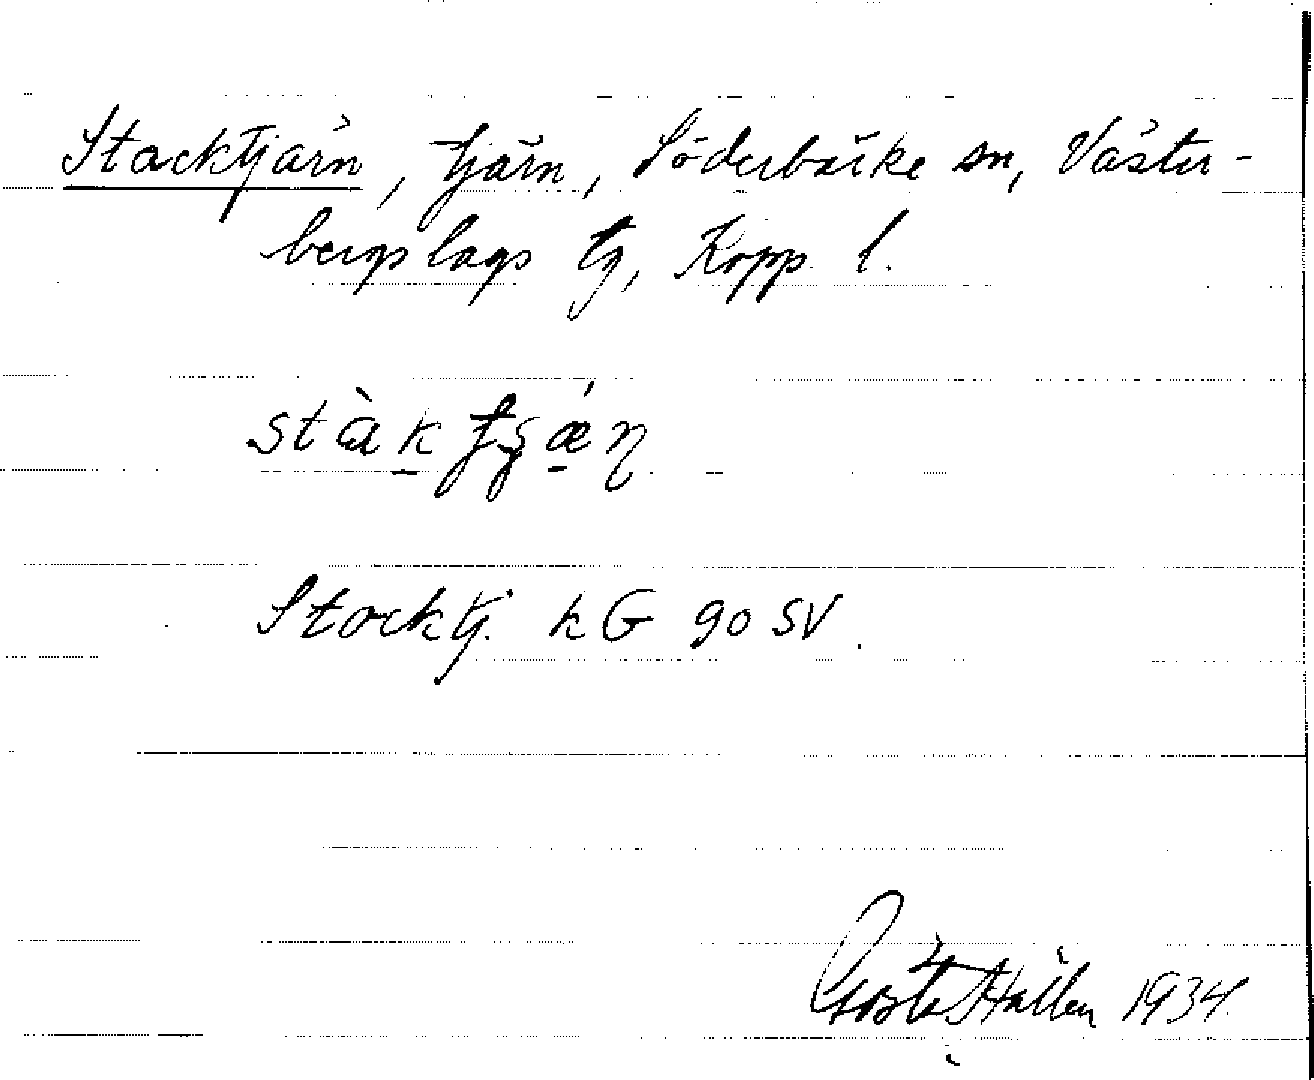 Stacktjärn, tjärn, Söderbärke sn, Väster-
bergslags tg, Kopp. l.
Stocktj. kG 90 SV.
Gösta Hallén 1934